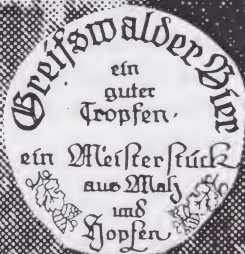 Greifswalder Bier
ein
guter
Tropfen.
ein Meisterstück
aus Malz
und
Hopfen